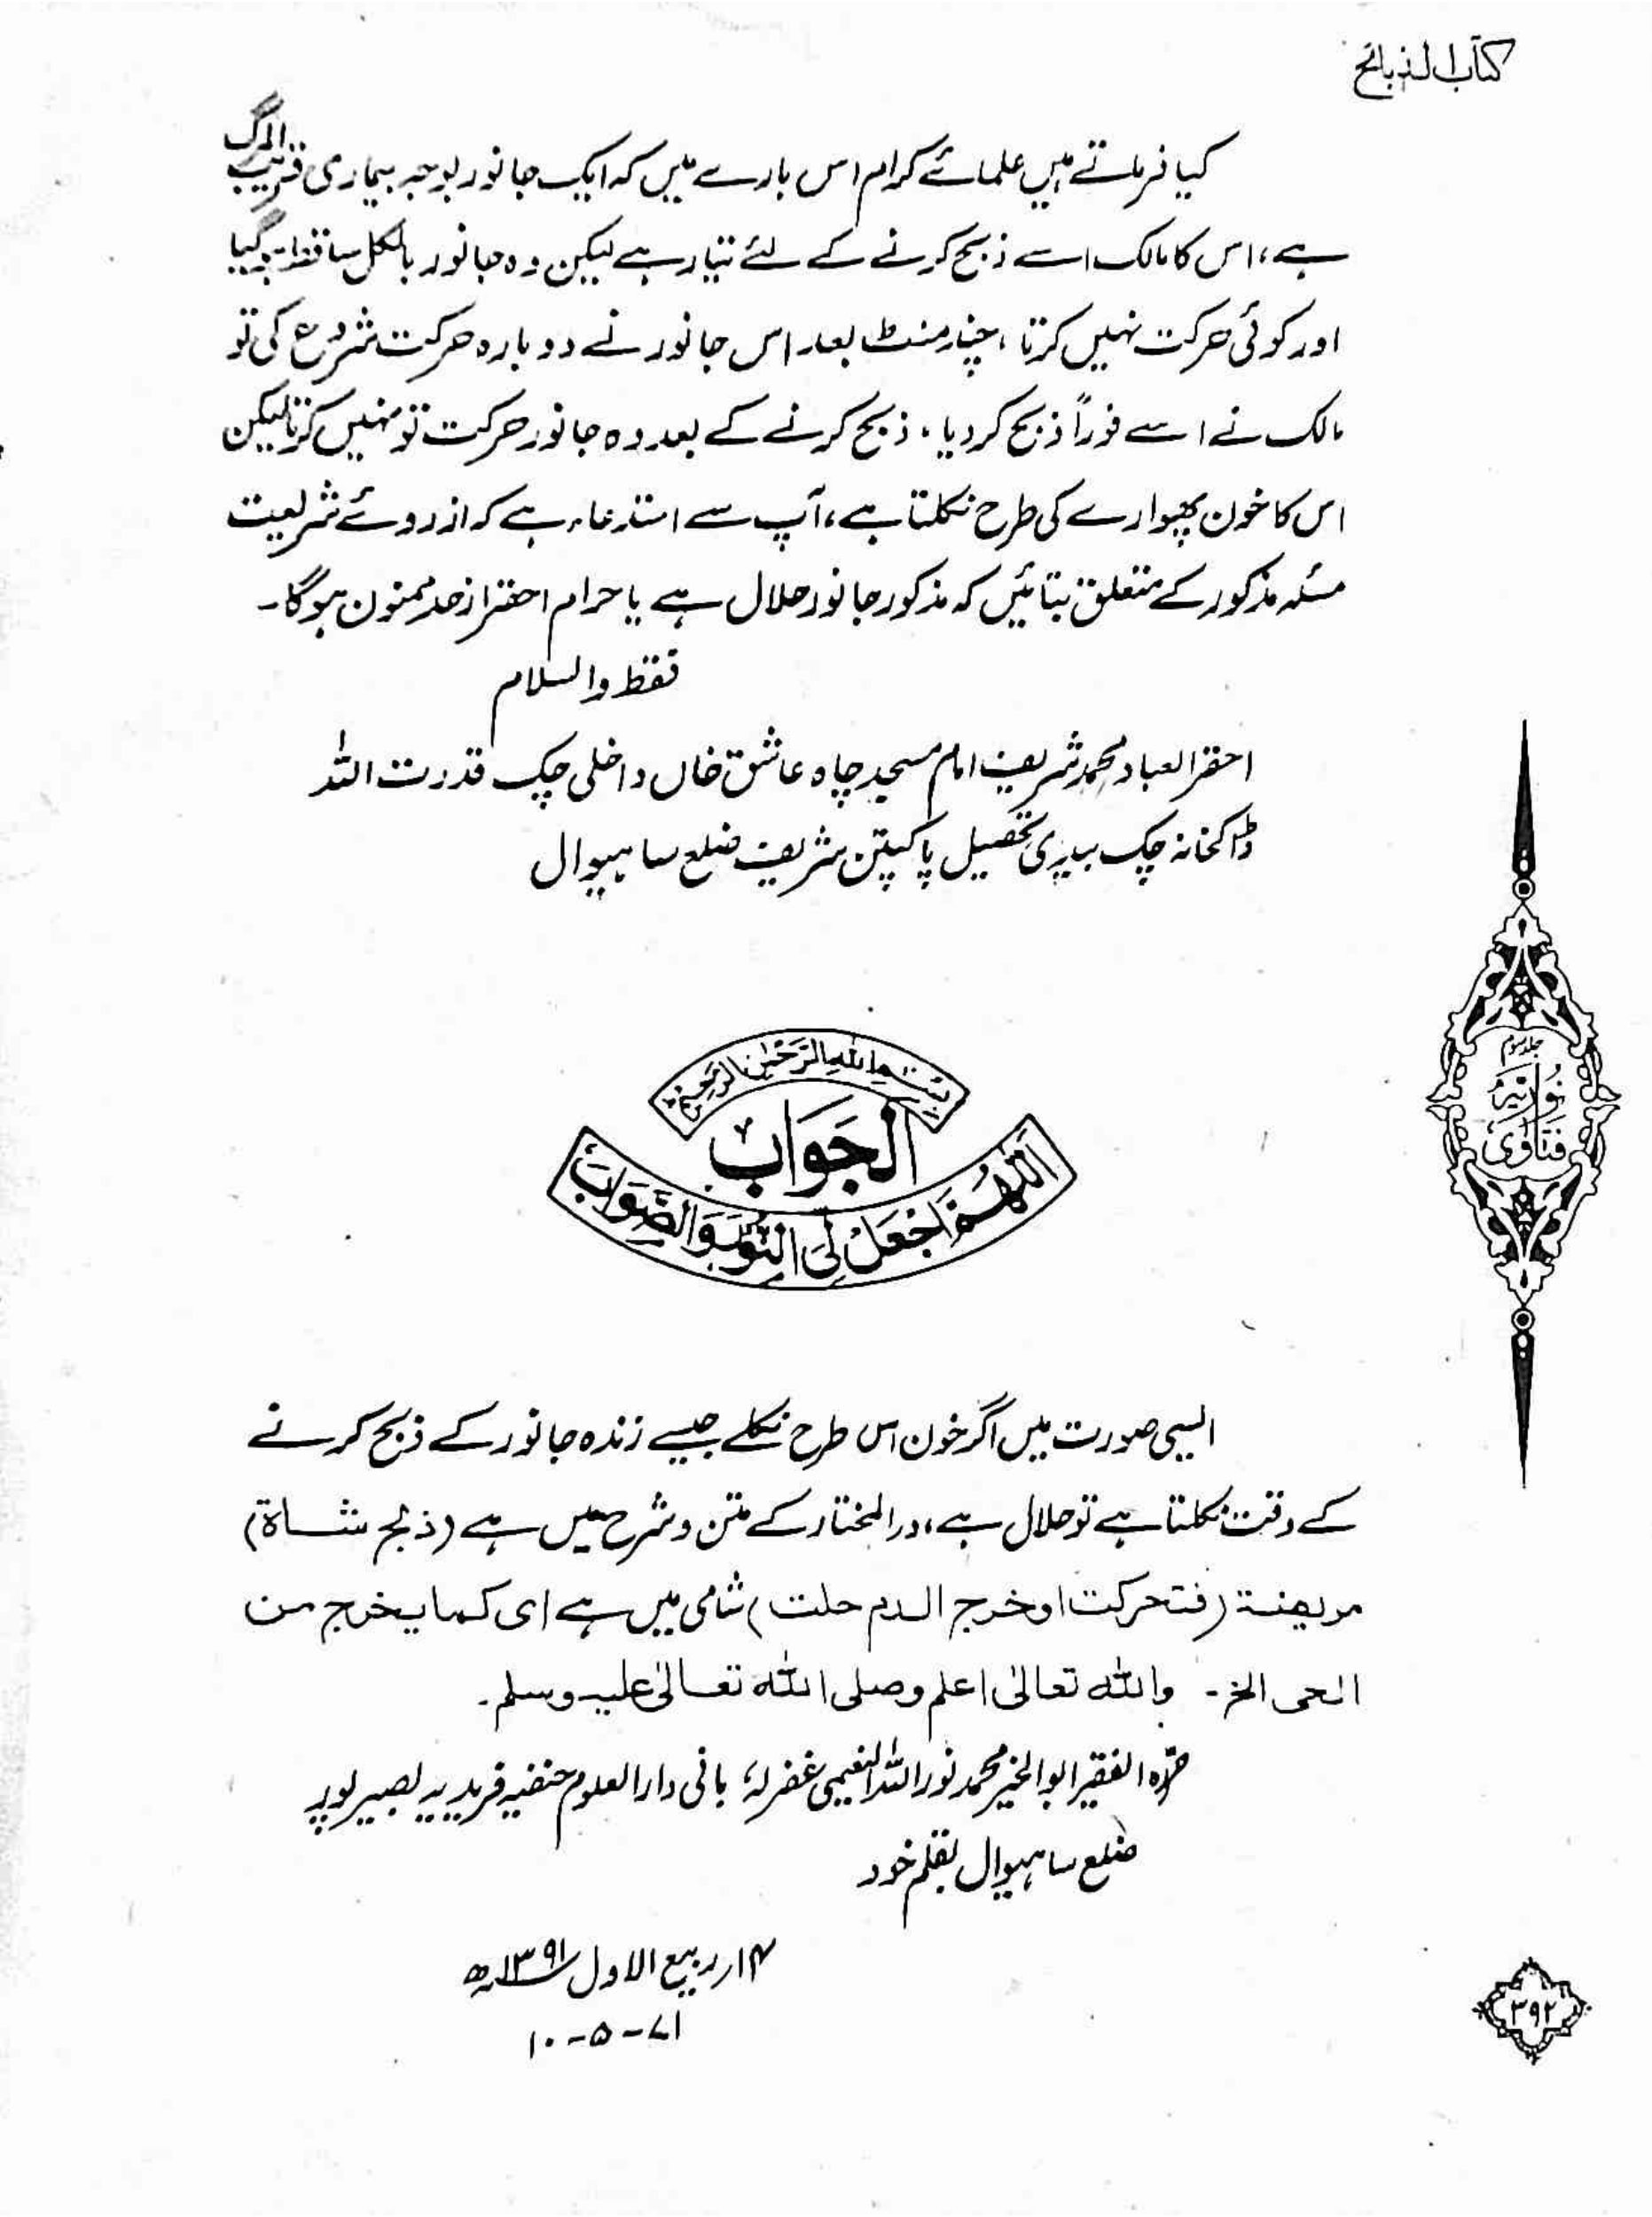 کتاب الذبائح
کیا فرماتے ہیں علمائے کرام اس بارے میں کہ ایک جانور بوجہ بیماری قریب المرگ
ہے، اس کا مالک اسے ذبح کرنے کے لئے تیار ہے لیکن وہ جانور بالکل ساقط ہوگیا
اور کوئی حرکت نہیں کرتا، چند منٹ بعد اس جانور نے دوبارہ حرکت شروع کی تو
مالک نے اسے فوراً ذبح کردیا، ذبح کرنے کے بعد وہ جانور حرکت تو نہیں کرتا لیکن
اس کا خون پھوارے کی طرح نکلتا ہے، آپ سے استدعاء ہے کہ از روئے شریعت
مسئلہ مذکور کے متعلق بتائیں کہ مذکور جانور حلال ہے یا حرام احقر از حد ممنون ہوگا۔
فقط والسلام
احقر العباد محمد شریف امام مسجد چاہ عاشق خاں داخلی چک قدرت اللہ
ڈاکخانہ چک بیدی تحصیل پاکپتن شریف ضلع ساہیوال
بِسْمِ اللهِ الرَّحْمٰنِ الرَّحِيْمِ
الجَوَابُ
اَللّٰهُمَّ اجْعَلْ لِيَ النُّوْرَ وَالصَّوَابَ
جلد سوم
نوریہ
فتاوٰی
ایسی صورت میں اگر خون اس طرح نکلے جیسے زندہ جانور کے ذبح کرنے
کے وقت نکلتا ہے تو حلال ہے، در المختار کے متن و شرح میں ہے (ذبح شاة)
مریضة (فتحرکت او خرج الدم حلت) شامی میں ہے ای کما یخرج من
الحی الخ۔ واللہ تعالیٰ اعلم وصلی اللہ تعالیٰ علیہ وسلم۔
حرّہ الفقیر ابو الخیر محمد نور اللہ النعیمی غفرلہٗ بانی دار العلوم حنفیہ فریدیہ بصیرپور
ضلع ساہیوال بقلم خود
۱۴ ربیع الاول ۱۳۹۱ھ
۱۰-۵-۷۱
۳۹۲